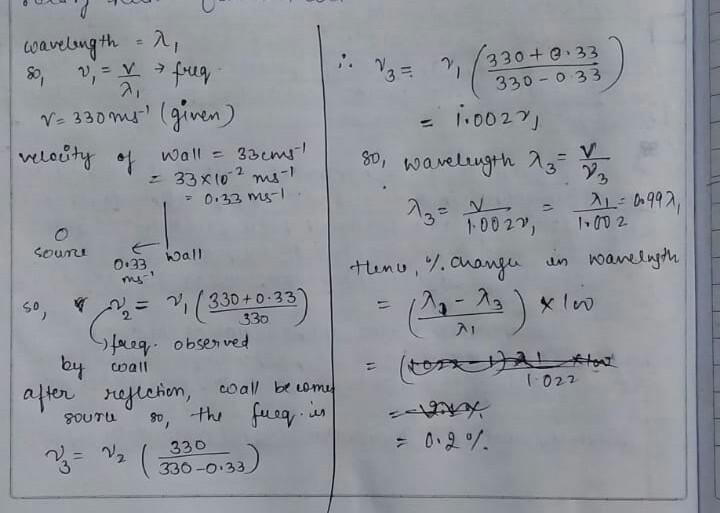 wavelength = λ₁
so, ν₁ = v/λ₁ → freq.
v = 330 ms⁻¹ (given)
velocity of wall = 33 cms⁻¹
= 33 × 10⁻² ms⁻¹
= 0.33 ms⁻¹
source
0.33 ms⁻¹
wall
so, ν₂ = ν₁ ((330 + 0.33)/330)
↳ freq. observed
by wall
after reflection, wall become
source so, the freq. is
ν₃ = ν₂ (330/(330 - 0.33))
∴ ν₃ = ν₁ ((330 + 0.33)/(330 - 0.33))
= 1.002 ν₁
so, wavelength λ₃ = v/ν₃
λ₃ = v/(1.002 ν₁) = λ₁/1.002 = 0.99 λ₁
Hence, % change in wavelength
= ((λ₁ - λ₃)/λ₁) × 100
1.022
= 0.2 %.